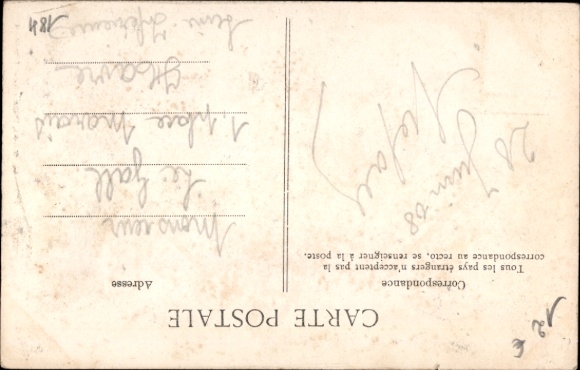 CARTE POSTALE
Correspondance
Tous les pays étrangers n'acceptent pas la
correspondance au recto, se renseigner à la poste.
28 Juin 08
Adresse
Monsieur
Le Gall
1, place Marais
Havre
Seine Inférieure
184
12 €